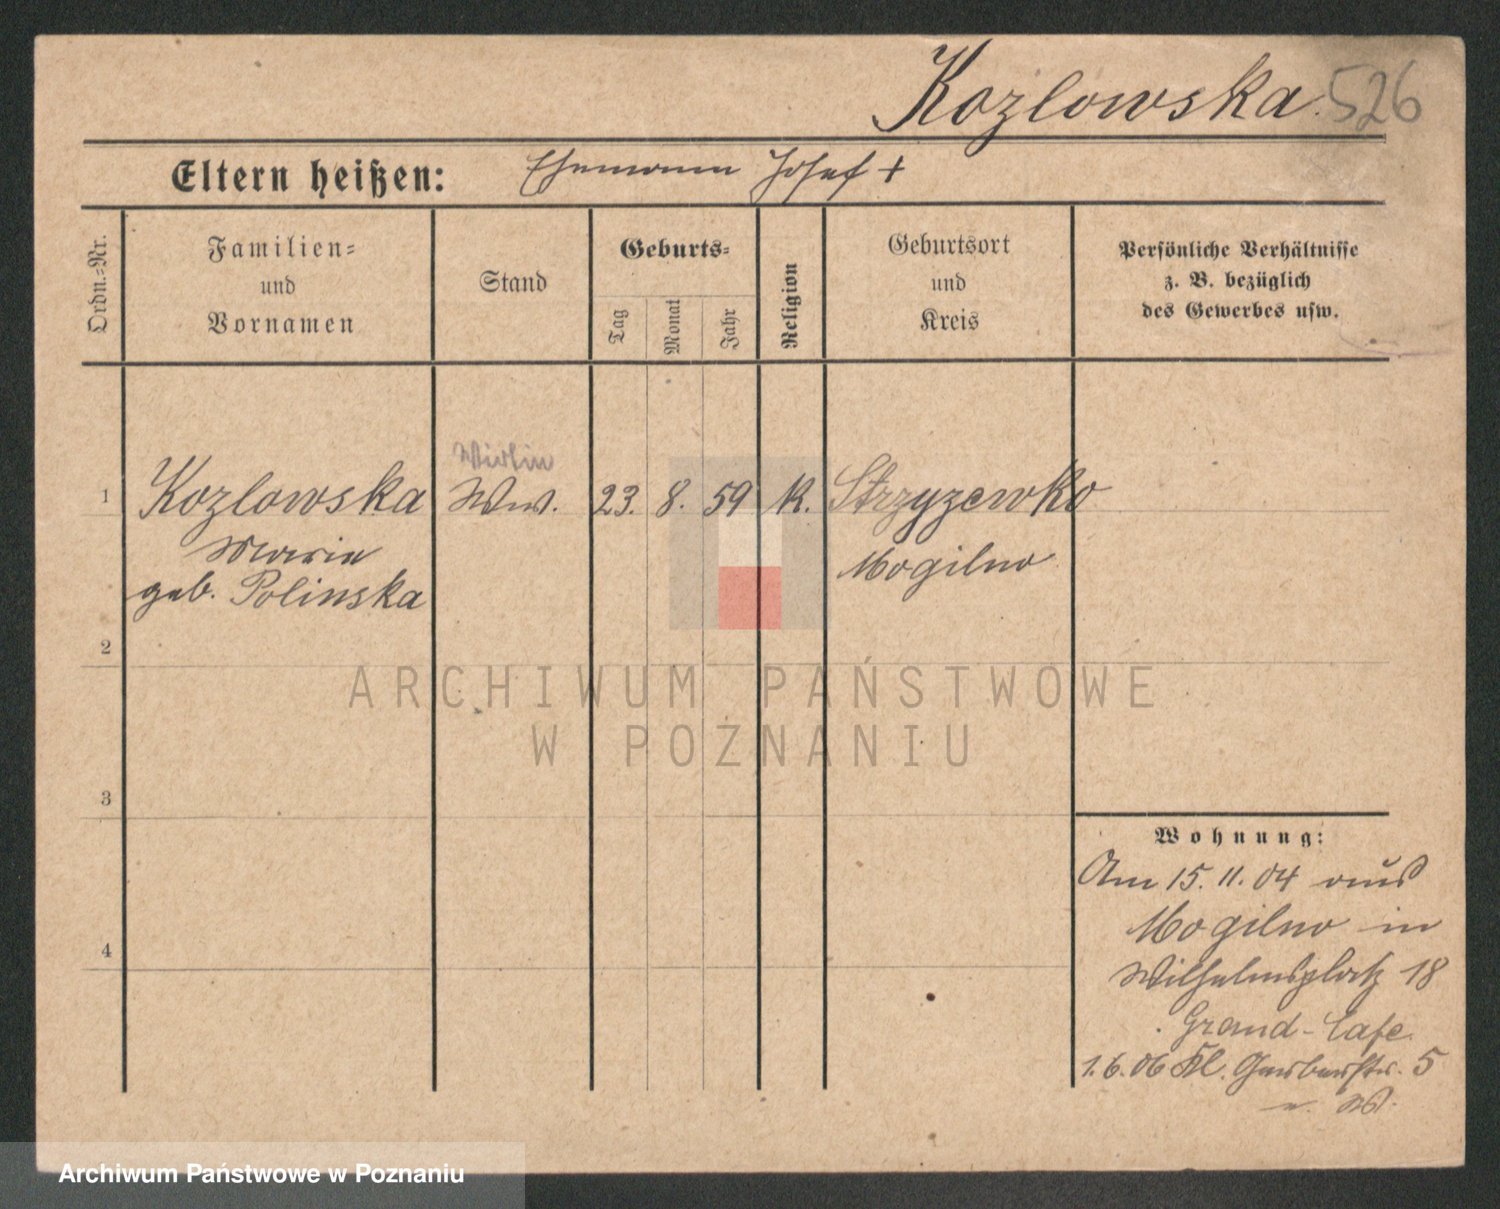 Kozlowska. 526
Eltern heißen: Ehemann Josef +
Ordn.-Nr.
Familien-
und
Vornamen
Stand
Geburts-
Tag
Monat
Jahr
Religion
Geburtsort
und
Kreis
Persönliche Verhältnisse
z. B. bezüglich
des Gewerbes usw.
Wirtin
1 Kozlowska Ww. 23. 8. 59 K. Strzyzewko
Marie Mogilno
geb. Polinska
2
3
4
ARCHIWUM PAŃSTWOWE
W POZNANIU
Wohnung:
Am 15. 11. 04 aus
Mogilno in
Wilhelmsplatz 18
Grand-Cafe
1. 6. 06 Kl. Gerberstr. 5
Archiwum Państwowe w Poznaniu